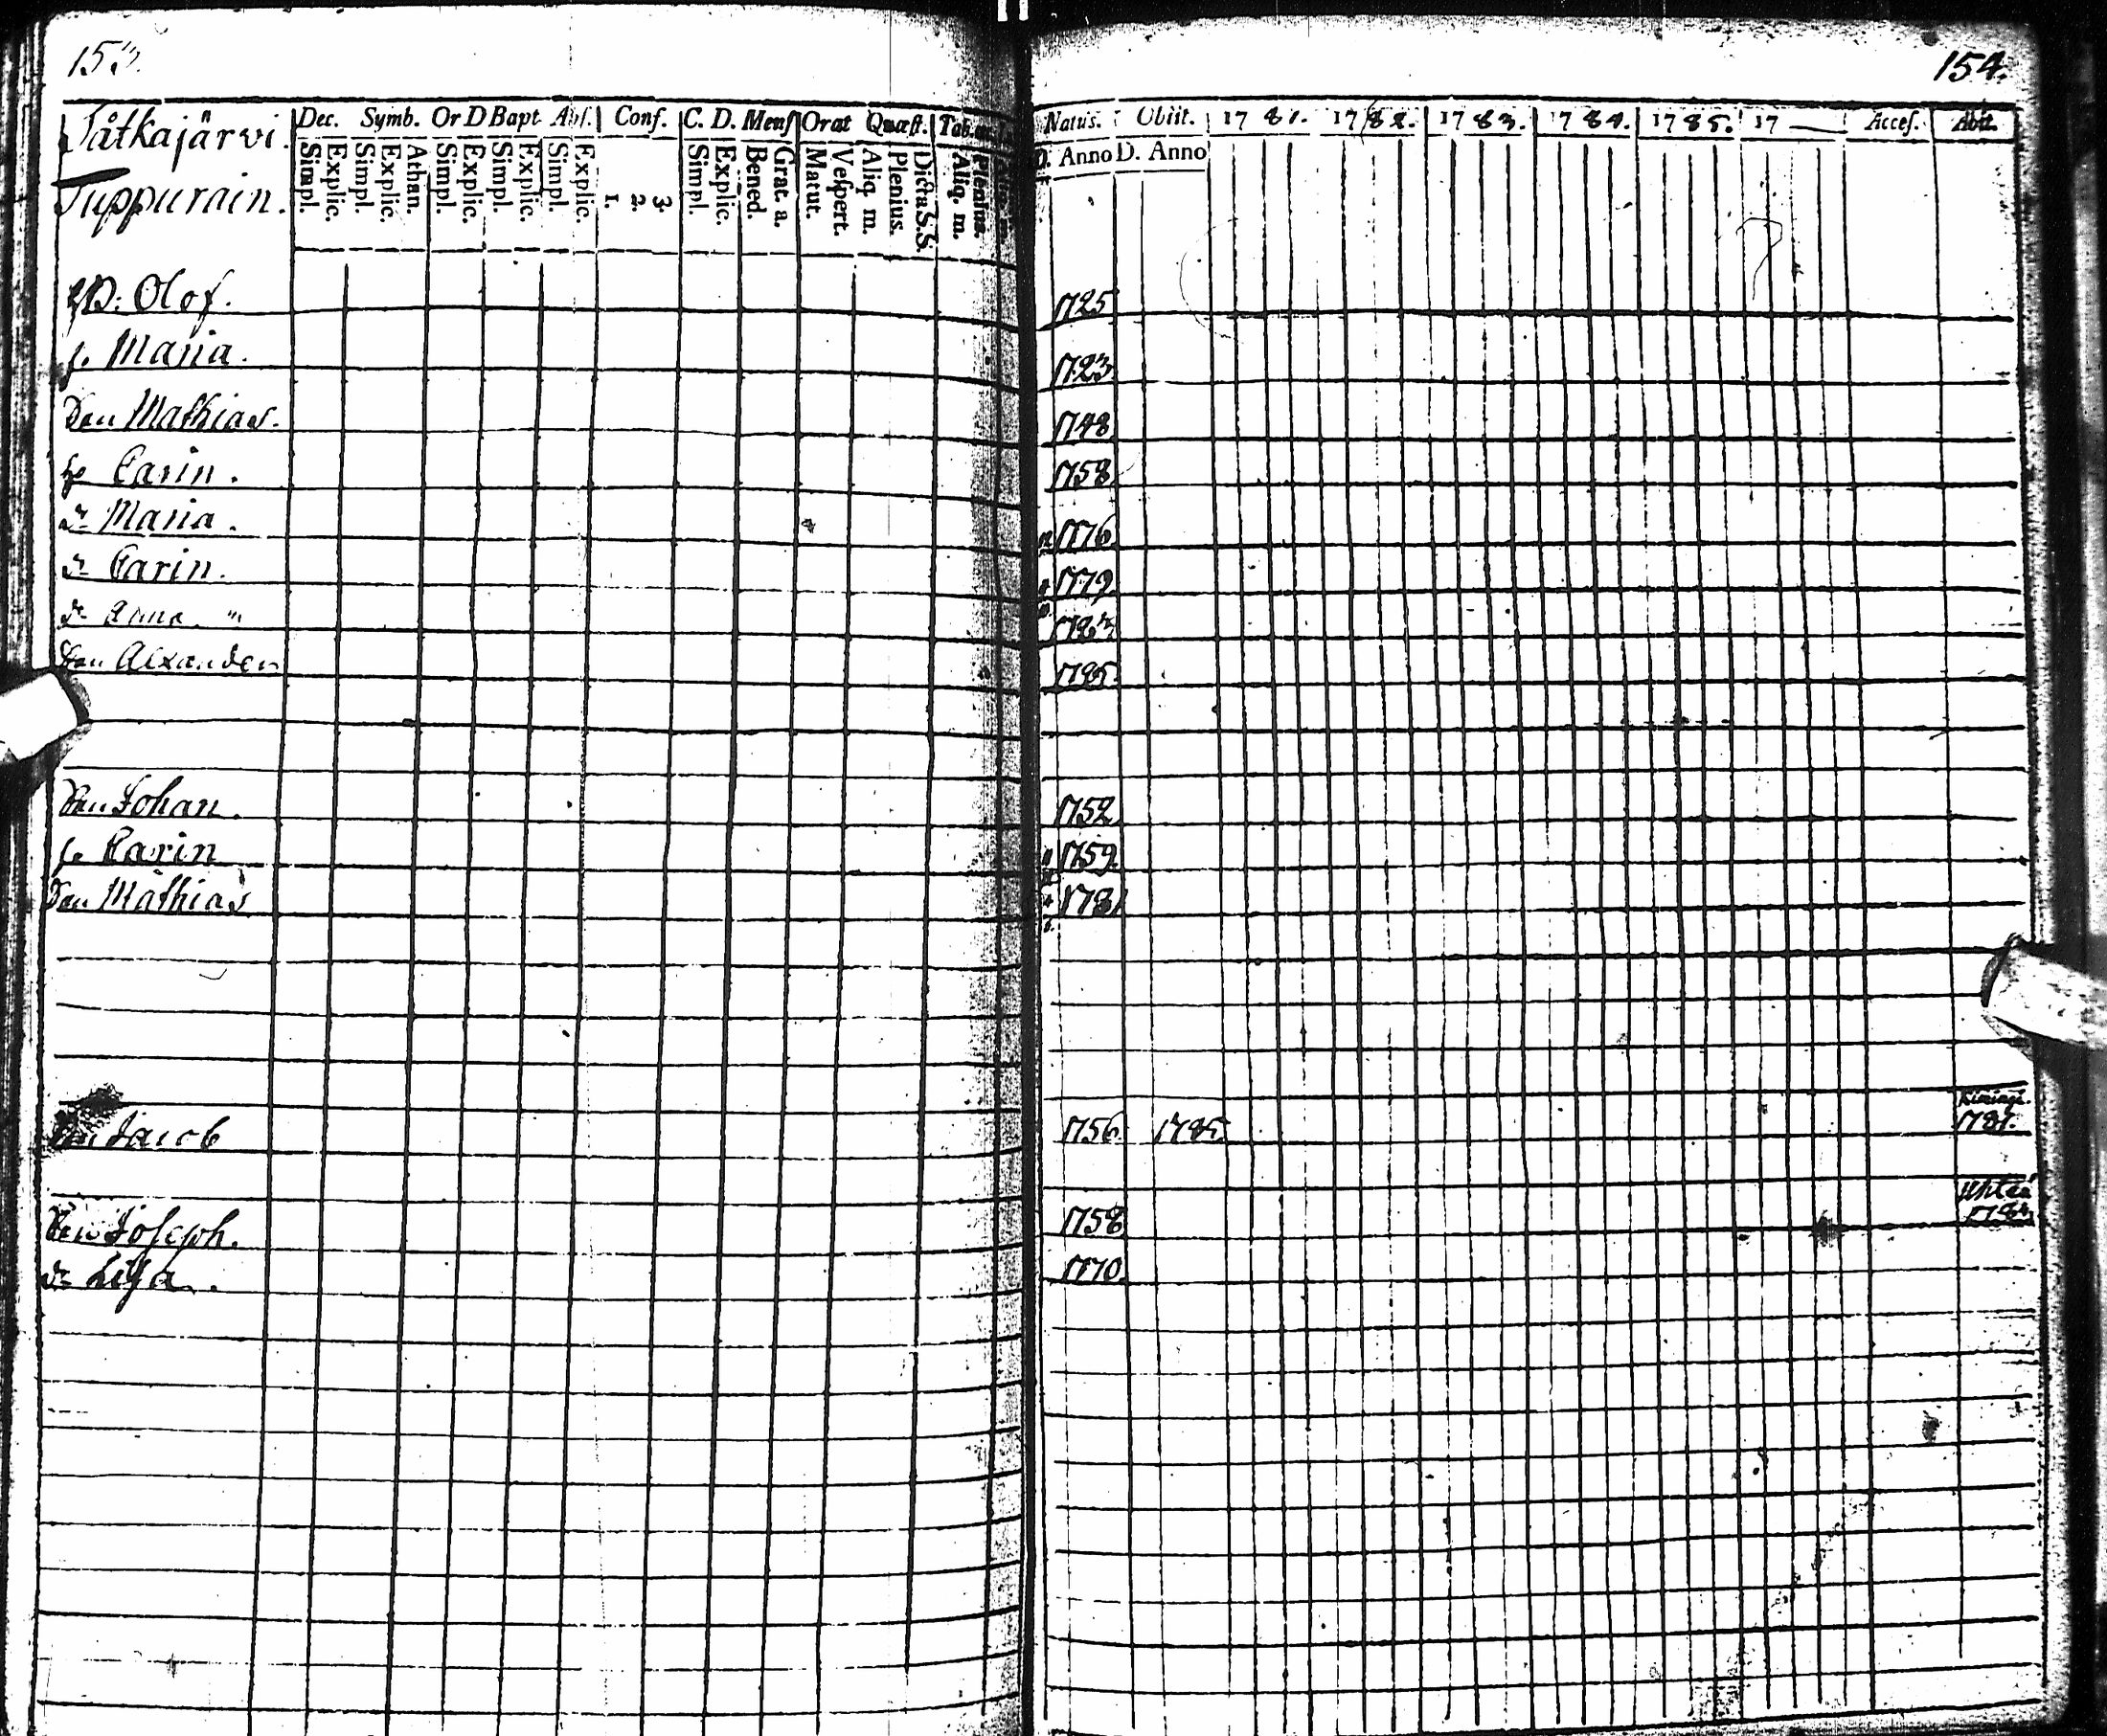 153.
Tåtkajärvi.
Tuppurain.
Dec. Symb. Or D Bapt Abs. Conf. C. D. Mens Orat Quæst. Tab.
Simpl. Explic. Simpl. Explic. Athan. Simpl. Explic. Simpl. Explic. Simpl. Explic. 1. 2. 3. Simpl. Explic. Bened. Grat. a. Matut. Vespert. Aliq. m. Plenius. Dicta S.S. Aliq. m. Plenius.
Olof.
Maria.
Son Mathias.
Carin.
Maria.
Carin.
Anna.
Son Alexander
Son Johan.
Karin
Son Mathias
Son Jacob
Son Joseph.
Lisa.
154.
Natus. Obiit. 1781. 1782. 1783. 1784. 1785. 17 Acces. Abit.
D. Anno D. Anno
1725
1723
1748
1758
1776
1779
1783
1785.
1752
1759
1781
1756 1785. 1781.
1758 1783
1770.